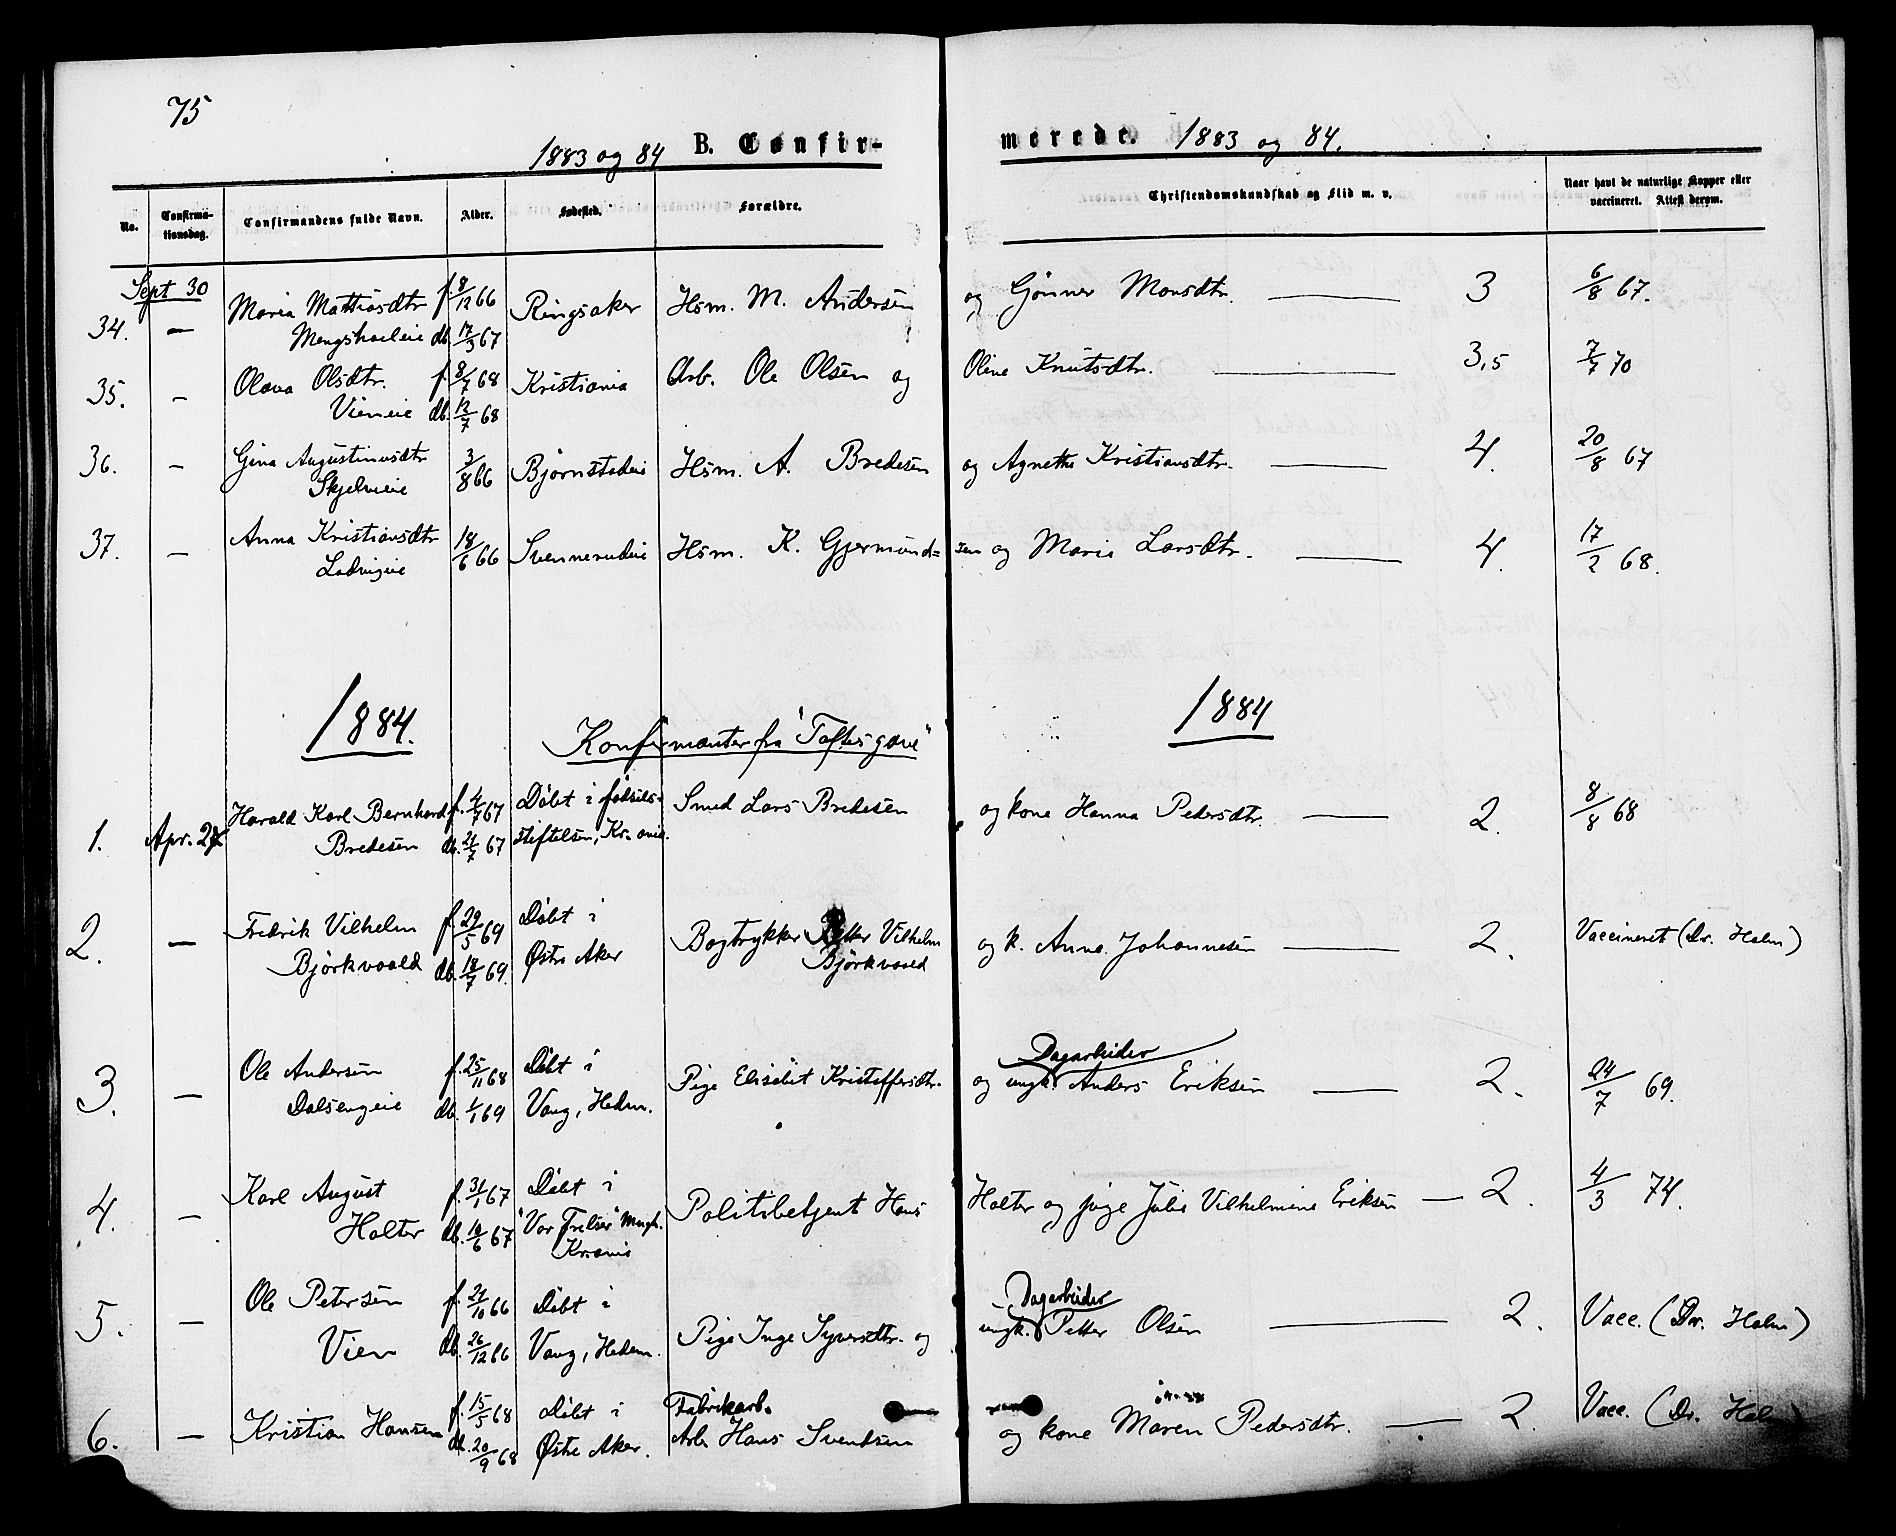 75
1883 og 84 B. Confir-
merede. 1883 og 84.
No. Confirmationsdag. Confirmandens fulde Navn. Alder. Fødested. Forældre.
Christendomskundskab og Flid m. v. Naar havt de naturlige Kopper eller vaccineret. Attest derom.
Sept 30
34. — Maria Mattiasdtr f. 8/12 66 Ringsaker Hsm. M. Andersen og Gjönner Monsdtr. — 3 6/8 67.
Mengshoeleie db. 17/3 67
35. — Olava Olsdtr. f. 8/7 68 Kristiania Arb. Ole Olsen og Oline Knutsdtr. — 3,5 7/7 70
Vieneie db. 12/7 68
36. — Gina Augustinusdtr 3/8 66 Bjørnstadeie Hsm. A. Bredesen og Agnethe Kristiansdtr. — 4. 20/8 67
Skjelveie
37. — Anna Kristiansdtr 18/6 66 Svennerudeie Hsm. K. Gjermund= sen og Maria Larsdtr. — 4. 17/2 68.
Ladvigeie
1884. Konfirmanter fra "Toftesgave" 1884
1. Apr. 27 Harald Karl Bernhard f. 4/7 67 Döbt i fødsels- Smed Lars Bredesen og kone Hanna Pedersdtr. — 2. 8/8 68
Bredesen db. 21/7 67 stiftelsen, Kr.ania.
2. — Fredrik Vilhelm f. 29/5 69 Döbt i Bogtrykker Petter Vilhelm og k. Anna Johannesen — 2. Vaccineret (Dr. Holm)
Björkvaald db. 18/7 69. Østre Aker Björkvaald
Dagarbeider
3. — Ole Andersen f. 25/11 68 Döbt i Pige Elisebet Kristoffersdtr. og ungk. Anders Eriksen — 2. 24/7 69.
Dalsengeie db. 1/1 69 Vang, Hedm.
4. — Karl August f. 31/1 67 Döbt i Politibetjent Hans Holter og pige Julie Vilhelmine Eriksen — 2. 4/3 74.
Holter db. 10/6 67 "Vor Frelser" Mngh.
Kr.ania
Dagarbeider
5. — Ole Petersen f. 21/10 66 Döbt i Pige Inge Syversdtr. og ungk. Petter Olsen — 2. Vacc. (Dr. Holm)
Vien db. 26/12 66 Vang, Hedem.
Fabrikarb.
6. — Kristian Hansen f. 15/5 68 Döbt i Arb. Hans Svendsen og kone Maren Pedersdtr. — 2. Vacc. (Dr. Holm)
db. 20/9 68 Østre Aker.